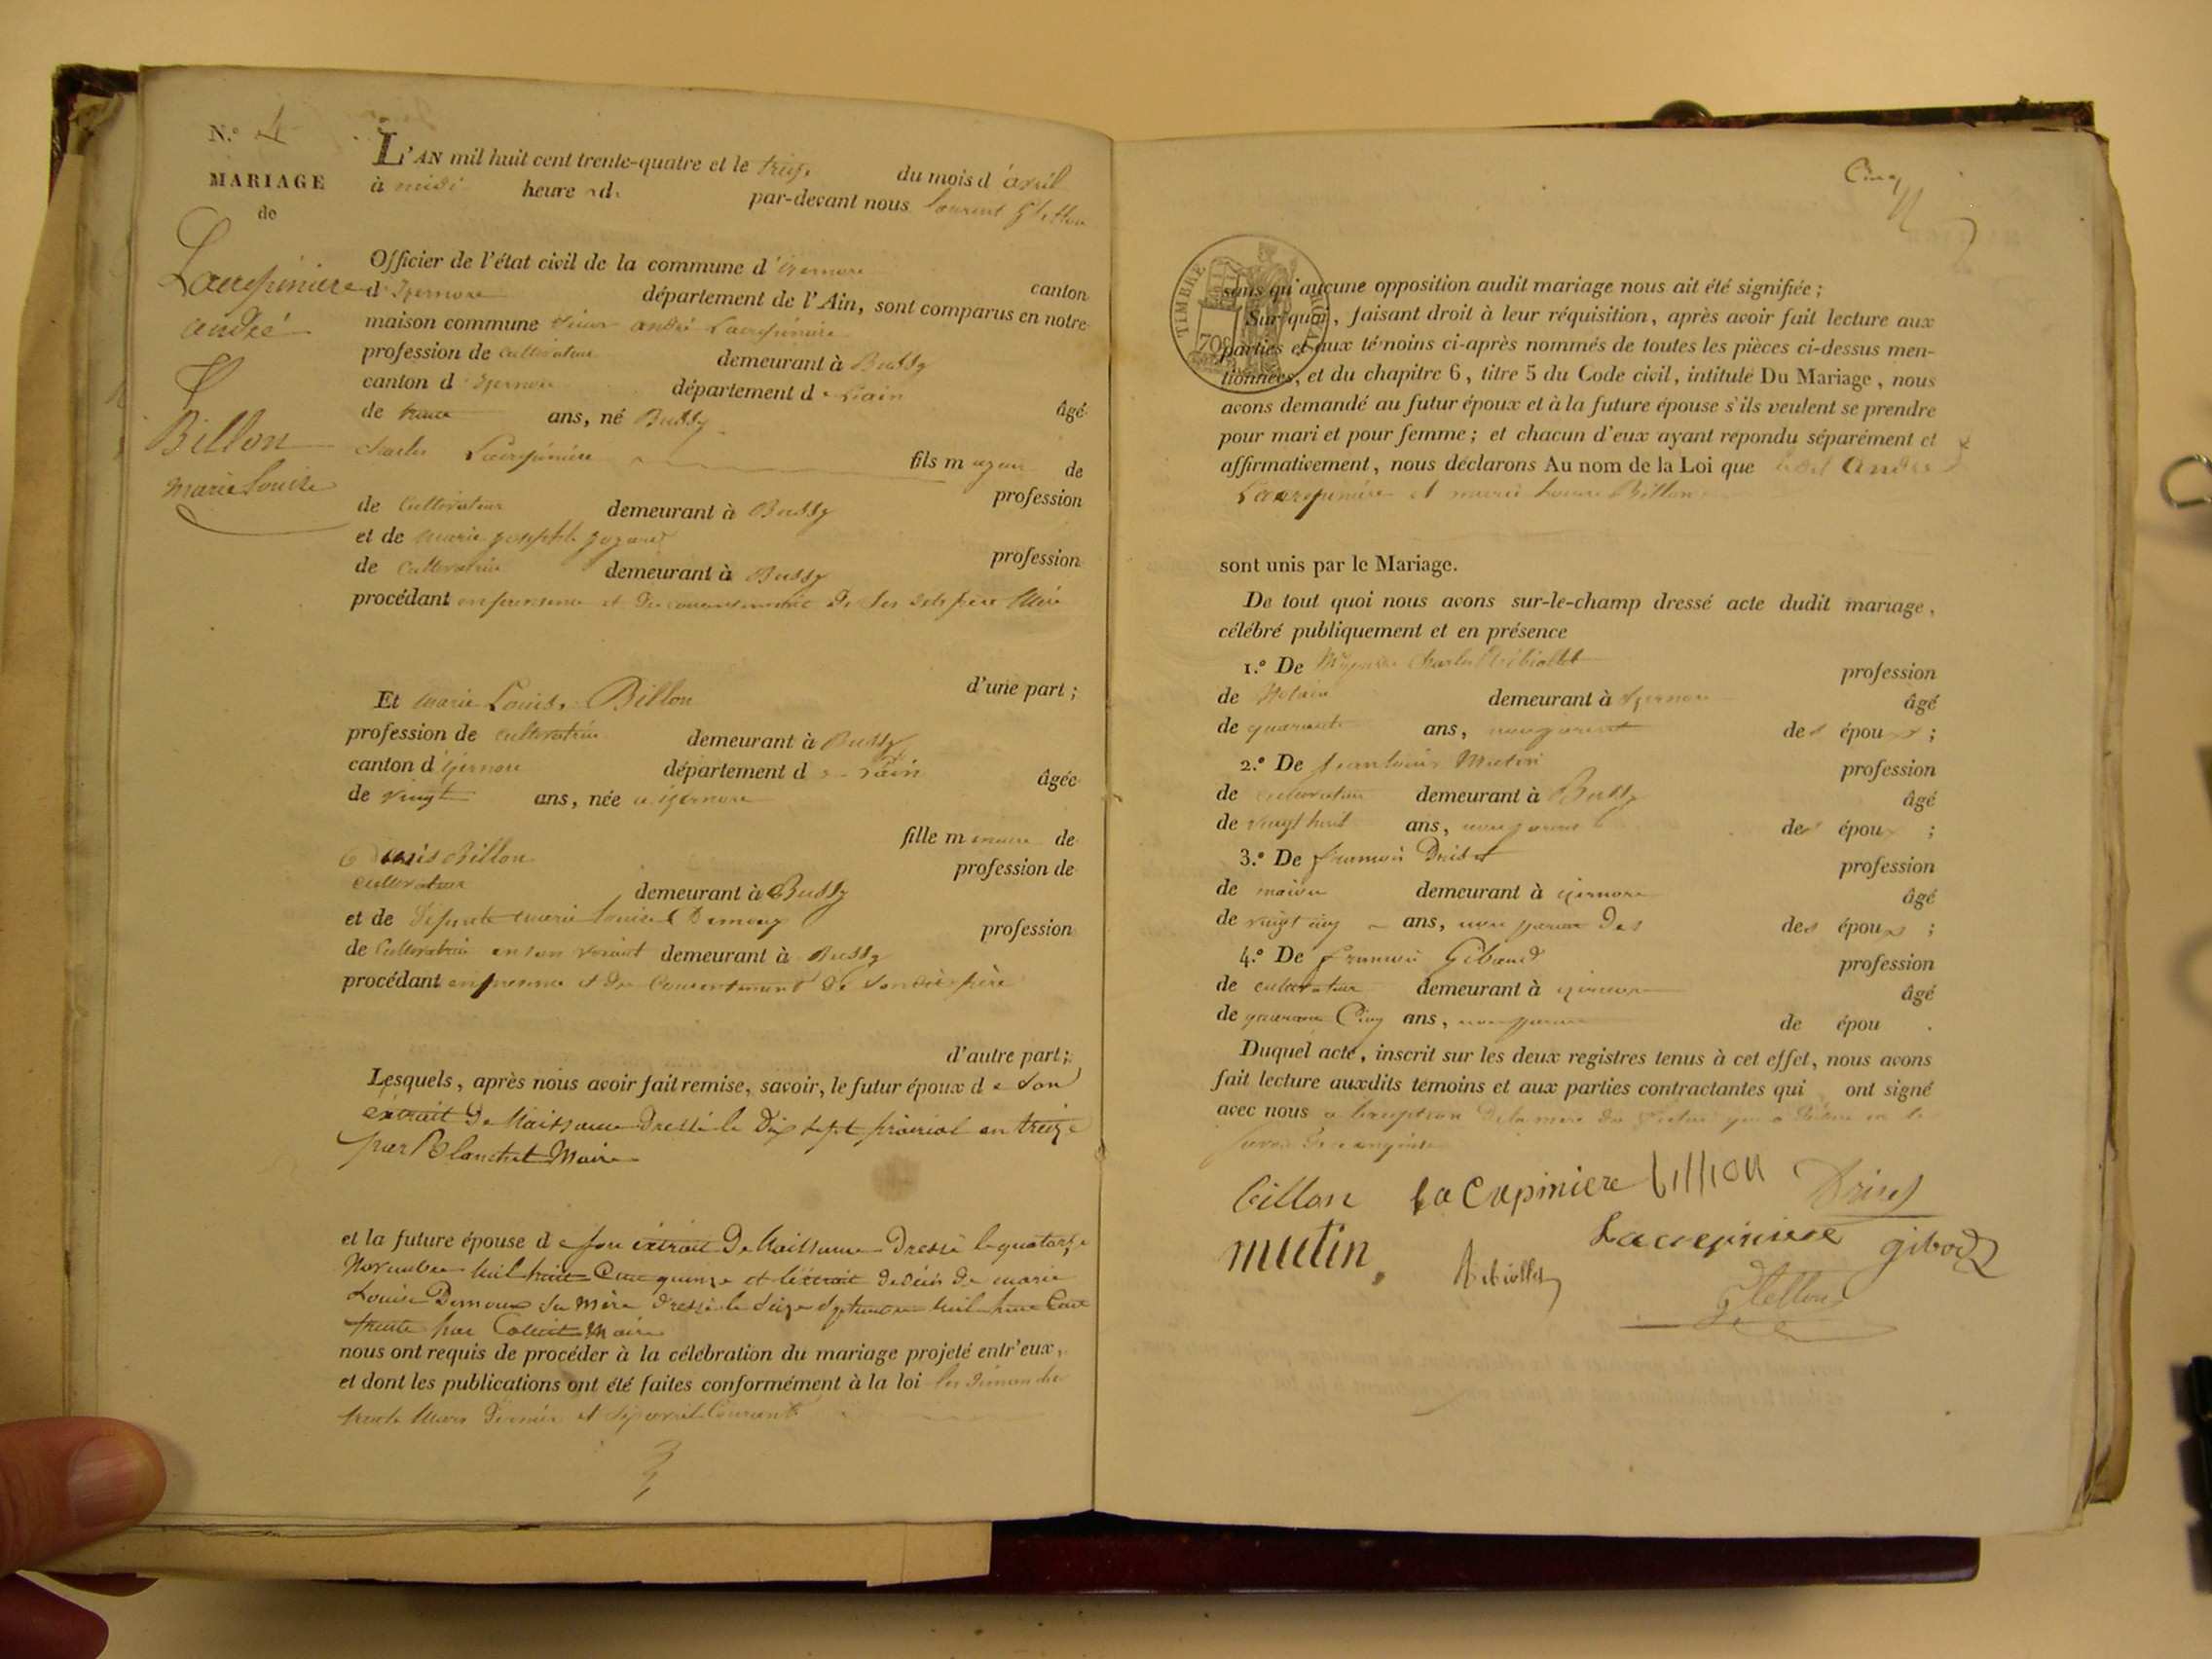 N.º 4
MARIAGE
de
Lacrepiniere
andré
&
Billon
marie Louise
L'AN mil huit cent trente-quatre et le treize du mois d'avril
à midi heure d par-devant nous Laurent
Officier de l'état civil de la commune d'izernore
canton
d'izernore département de l'Ain, sont comparus en notre
maison commune sieur andré Lacrepiniere
profession de cultivateur demeurant à Bussy
canton d'izernore département de Lain
âgé
de trente ans, né Bussy
fils majeur de
Charles Lacrepiniere
profession
de cultivateur demeurant à Bussy
et de marie josephte
profession
de cultivatrice demeurant à Bussy
procédant en personne et du consentement de ses dits père Mère
d'une part ;
Et marie Louise Billon
profession de cultivatrice demeurant à Bussy
canton d'izernore département de Lain
âgée
de vingt ans, née a izernore
fille mineure de
Denis Billon
profession de
cultivateur demeurant à Bussy
et de défunte marie Louise Demoux
profession
de cultivatrice en son vivant demeurant à Bussy
procédant en personne et du Consentement de son dit père
d'autre part ;
Lesquels, après nous avoir fait remise, savoir, le futur époux de son
extrait de Naissance Dressé le Dix sept prairial an treize
par Blanchet Maire
et la future épouse de son extrait de Naissance Dressé le quatorze
Novembre mil huit Cent quinze et l'extrait de décès de marie
Louise Demoux sa mère dressé le seize septembre mil huit Cent
trente par Maire
nous ont requis de procéder à la célébration du mariage projeté entr'eux,
et dont les publications ont été faites conformément à la loi les dimanches
trente Mars dernier et six avril Courant
Cinq
TIMBRE ROYAL
70c
sans qu'aucune opposition audit mariage nous ait été signifiée ;
Sur quoi, faisant droit à leur réquisition, après avoir fait lecture aux
parties et aux témoins ci-après nommés de toutes les pièces ci-dessus men-
tionnées, et du chapitre 6, titre 5 du Code civil, intitulé Du Mariage, nous
avons demandé au futur époux et à la future épouse s'ils veulent se prendre
pour mari et pour femme ; et chacun d'eux ayant répondu séparément et
affirmativement, nous déclarons Au nom de la Loi que ledit André
Lacrepiniere et marie Louise Billon
sont unis par le Mariage.
De tout quoi nous avons sur-le-champ dressé acte dudit mariage,
célébré publiquement et en présence
1.º De Charles
profession
de Notaire demeurant à izernore
âgé
de quarante ans, non parent des époux ;
2.º De jean louis Mutin
profession
de cultivateur demeurant à Bussy
âgé
de vingt huit ans, non parent des époux ;
3.º De françois Druet
profession
de demeurant à izernore
âgé
de vingt cinq ans, non parent des des époux ;
4.º De françois Gibaud
profession
de cultivateur demeurant à izernore
âgé
de quarante Cinq ans, non parent de épou .
Duquel acte, inscrit sur les deux registres tenus à cet effet, nous avons
fait lecture auxdits témoins et aux parties contractantes qui ont signé
avec nous a l'exception de la mère du futur qui a déclaré ne le
savoir de ce enquise
billon lacrepiniere billion
mutin, Lacrepiniere gibod